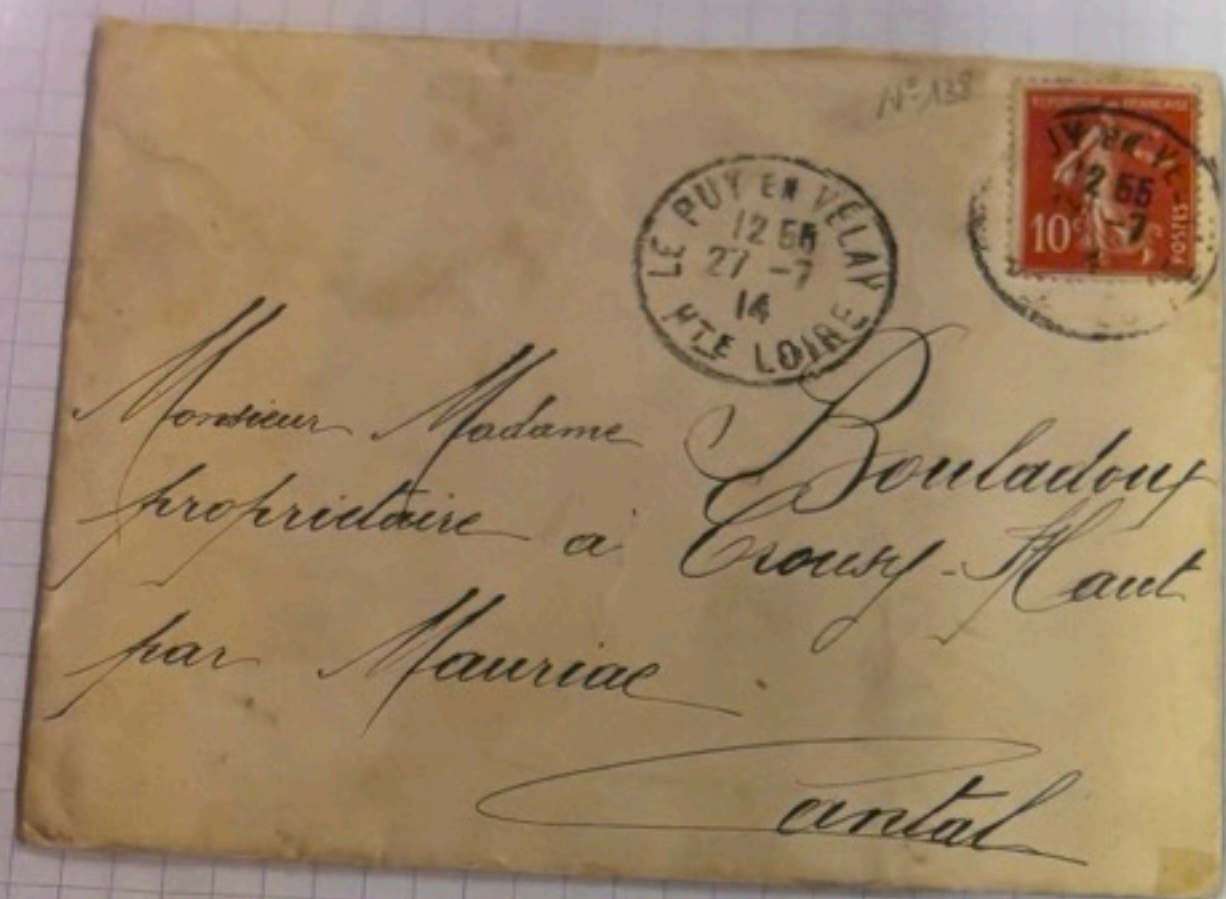 N° 138
REPUBLIQUE FRANÇAISE
10c
POSTES
12 55
-7
LE PUY EN VELAY
12 55
27 -7
14
HTE LOIRE
Monsieur Madame Bouladoux
propriétaire à Crouzy-Haut
par Mauriac
Cantal